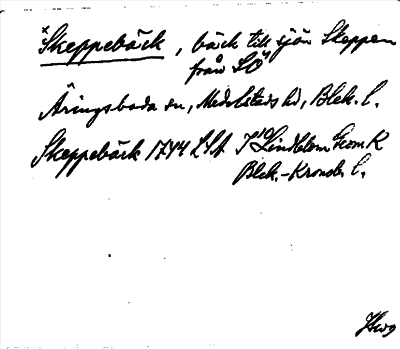 *Skeppebäck, bäck till sjön Skeppen
från SÖ
Äringsboda sn, Medelstads hd, Blek. l.
Skeppebäck 1744 LSA J 10 Lindblom Geom. K
Blek.-Kronob. l.